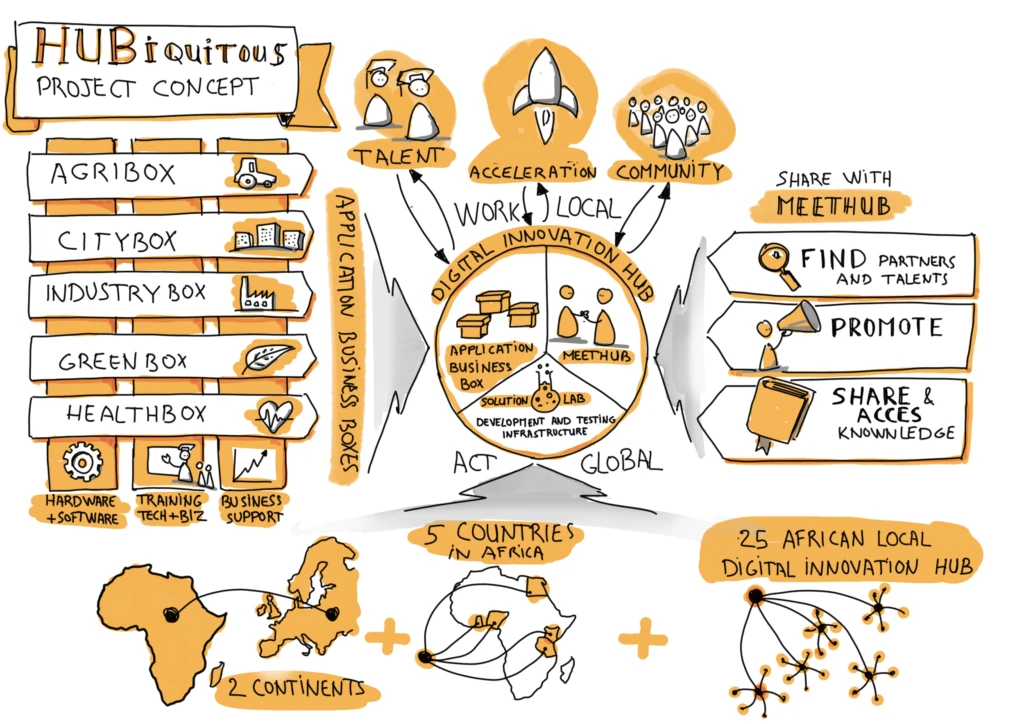 HUBiQUITOUS
PROJECT CONCEPT
AGRIBOX
CITYBOX
INDUSTRY BOX
GREENBOX
HEALTHBOX
HARDWARE
+SOFTWARE
TRAINING
TECH+BIZ
BUSINESS
SUPPORT
APPLICATION BUSINESS BOXES
TALENT
ACCELERATION
COMMUNITY
WORK LOCAL
DIGITAL INNOVATION HUB
APPLICATION
BUSINESS
BOX
MEETHUB
SOLUTION LAB
DEVELOPMENT AND TESTING
INFRASTRUCTURE
ACT GLOBAL
SHARE WITH
MEETHUB
FIND PARTNERS
AND TALENTS
PROMOTE
SHARE &
ACCES
KNOWLEDGE
2 CONTINENTS
+
5 COUNTRIES
IN AFRICA
+
25 AFRICAN LOCAL
DIGITAL INNOVATION HUB